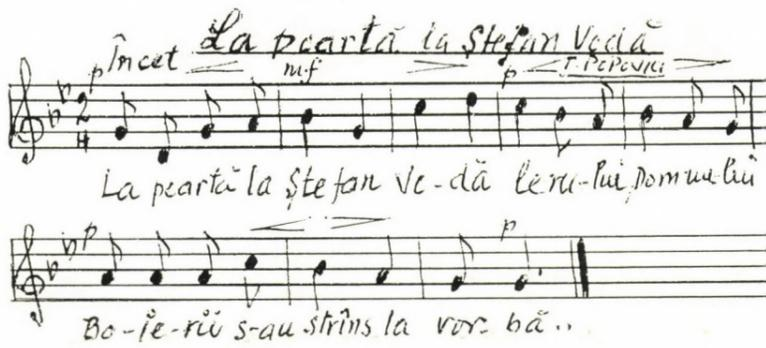 La poartă la Ștefan Vodă
Încet
T. POPOVICI
p mf p
2
4
La poartă la Ște fan Vo-dă leru-lui Domnu-lui
p p
Bo-ie-rii s-au strîns la vor-bă..